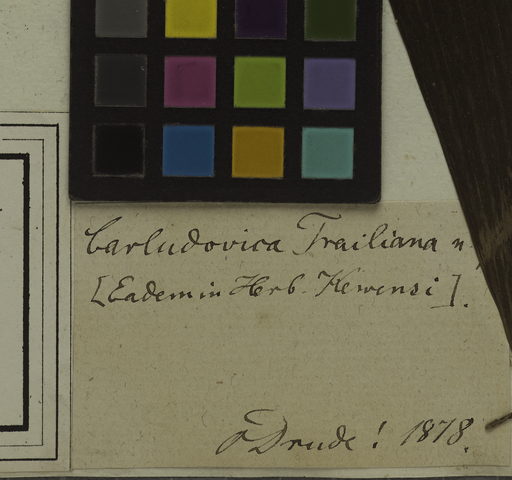 Carludovica Trailiana n.
[Eadem in Herb. Kewensi].
O Drude! 1878.